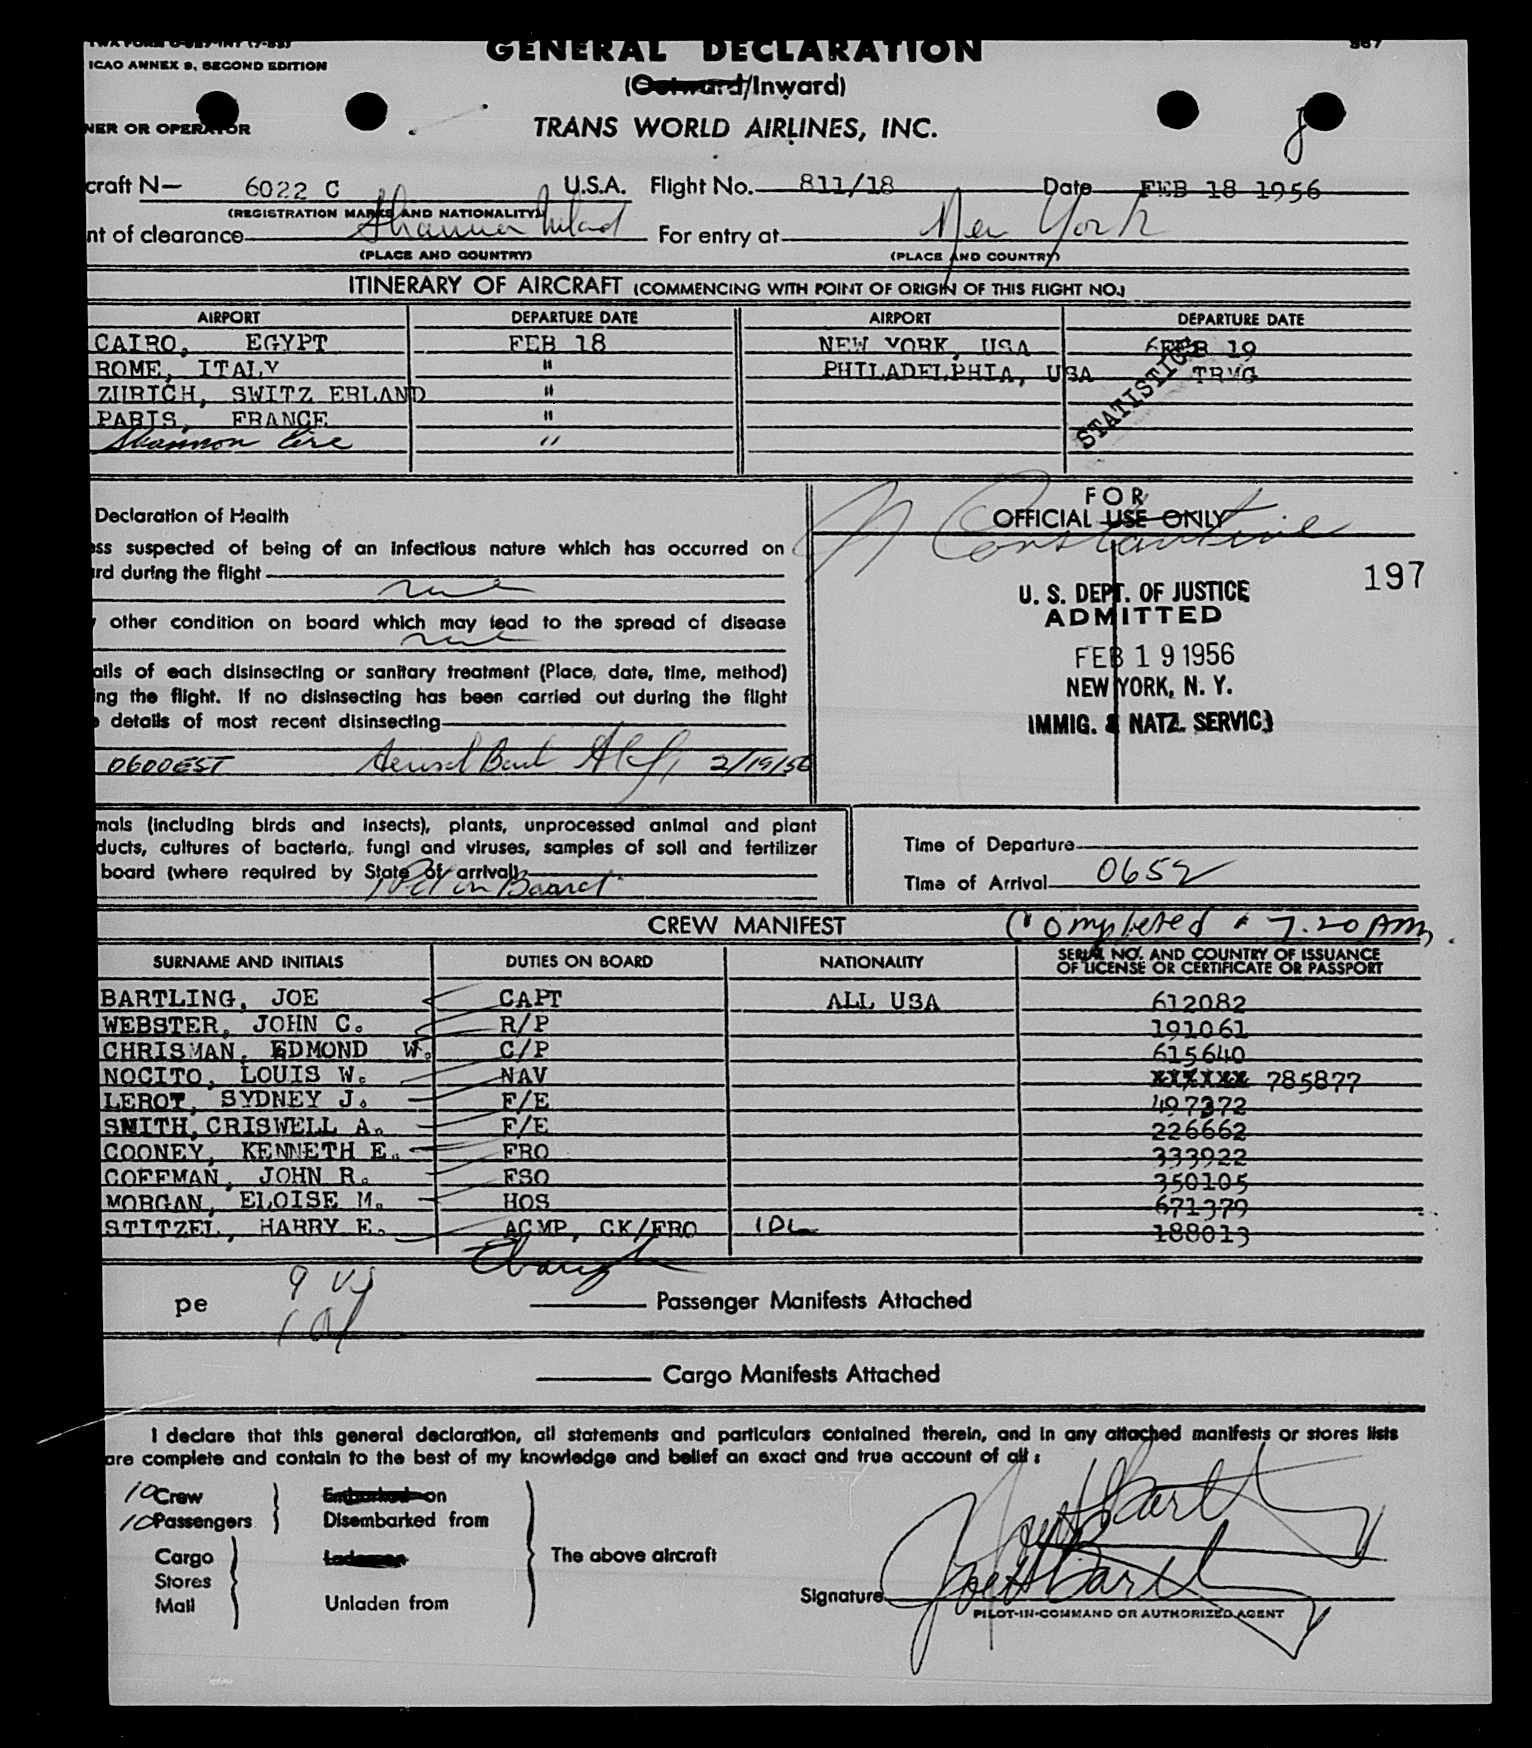 TWA FORM
GENERAL DECLARATION
567
ICAO ANNEX 9, SECOND EDITION
(Outward/Inward)
NER OR OPERATOR
TRANS WORLD AIRLINES, INC.
craft N— 6022 C U.S.A. Flight No. 811/18 Date FEB 18 1956
(REGISTRATION MARKS AND NATIONALITY)
nt of clearance Shannon Ireland For entry at New York
(PLACE AND COUNTRY) (PLACE AND COUNTRY)
ITINERARY OF AIRCRAFT (COMMENCING WITH POINT OF ORIGIN OF THIS FLIGHT NO.)
AIRPORT DEPARTURE DATE AIRPORT DEPARTURE DATE
CAIRO, EGYPT FEB 18 NEW YORK, USA FEB 19
ROME, ITALY " PHILADELPHIA, USA TRMG
ZURICH, SWITZ ERLAND "
PARIS, FRANCE " STATISTICS
Shannon Eire "
Declaration of Health
FOR
OFFICIAL USE ONLY
N Constantine
ess suspected of being of an infectious nature which has occurred on
rd during the flight
197
U. S. DEPT. OF JUSTICE
ADMITTED
FEB 19 1956
NEW YORK, N. Y.
IMMIG. & NATZ. SERVICE
other condition on board which may lead to the spread of disease
ails of each disinsecting or sanitary treatment (Place, date, time, method)
ing the flight. If no disinsecting has been carried out during the flight
details of most recent disinsecting
0600EST Aerosol Bomb 2/19/56
mals (including birds and insects), plants, unprocessed animal and plant
ducts, cultures of bacteria, fungi and viruses, samples of soil and fertilizer
board (where required by State of arrival)
on Board
Time of Departure
Time of Arrival 0652
CREW MANIFEST Completed 7.20 AM
SURNAME AND INITIALS DUTIES ON BOARD NATIONALITY SERIAL NO. AND COUNTRY OF ISSUANCE
OF LICENSE OR CERTIFICATE OR PASSPORT
BARTLING, JOE CAPT ALL USA 612082
WEBSTER, JOHN C. R/P 191061
CHRISMAN, EDMOND W. C/P 615640
NOCITO, LOUIS W. NAV XXXXXX 785877
LEROY, SYDNEY J. F/E 497372
SMITH, CRISWELL A. F/E 226662
COONEY, KENNETH E. FRO 333922
COFFMAN, JOHN R. FSO 350105
MORGAN, ELOISE M. HOS 671379
STITZEL, HARRY E. ACMP, CK/FRO 188013
pe
9 US
Passenger Manifests Attached
Cargo Manifests Attached
I declare that this general declaration, all statements and particulars contained therein, and in any attached manifests or stores lists
are complete and contain to the best of my knowledge and belief an exact and true account of all:
10 Crew Embarked on
10 Passengers Disembarked from
Cargo Laden on The above aircraft
Stores
Mail Unladen from
Signature Joe H Bartling
PILOT-IN-COMMAND OR AUTHORIZED AGENT